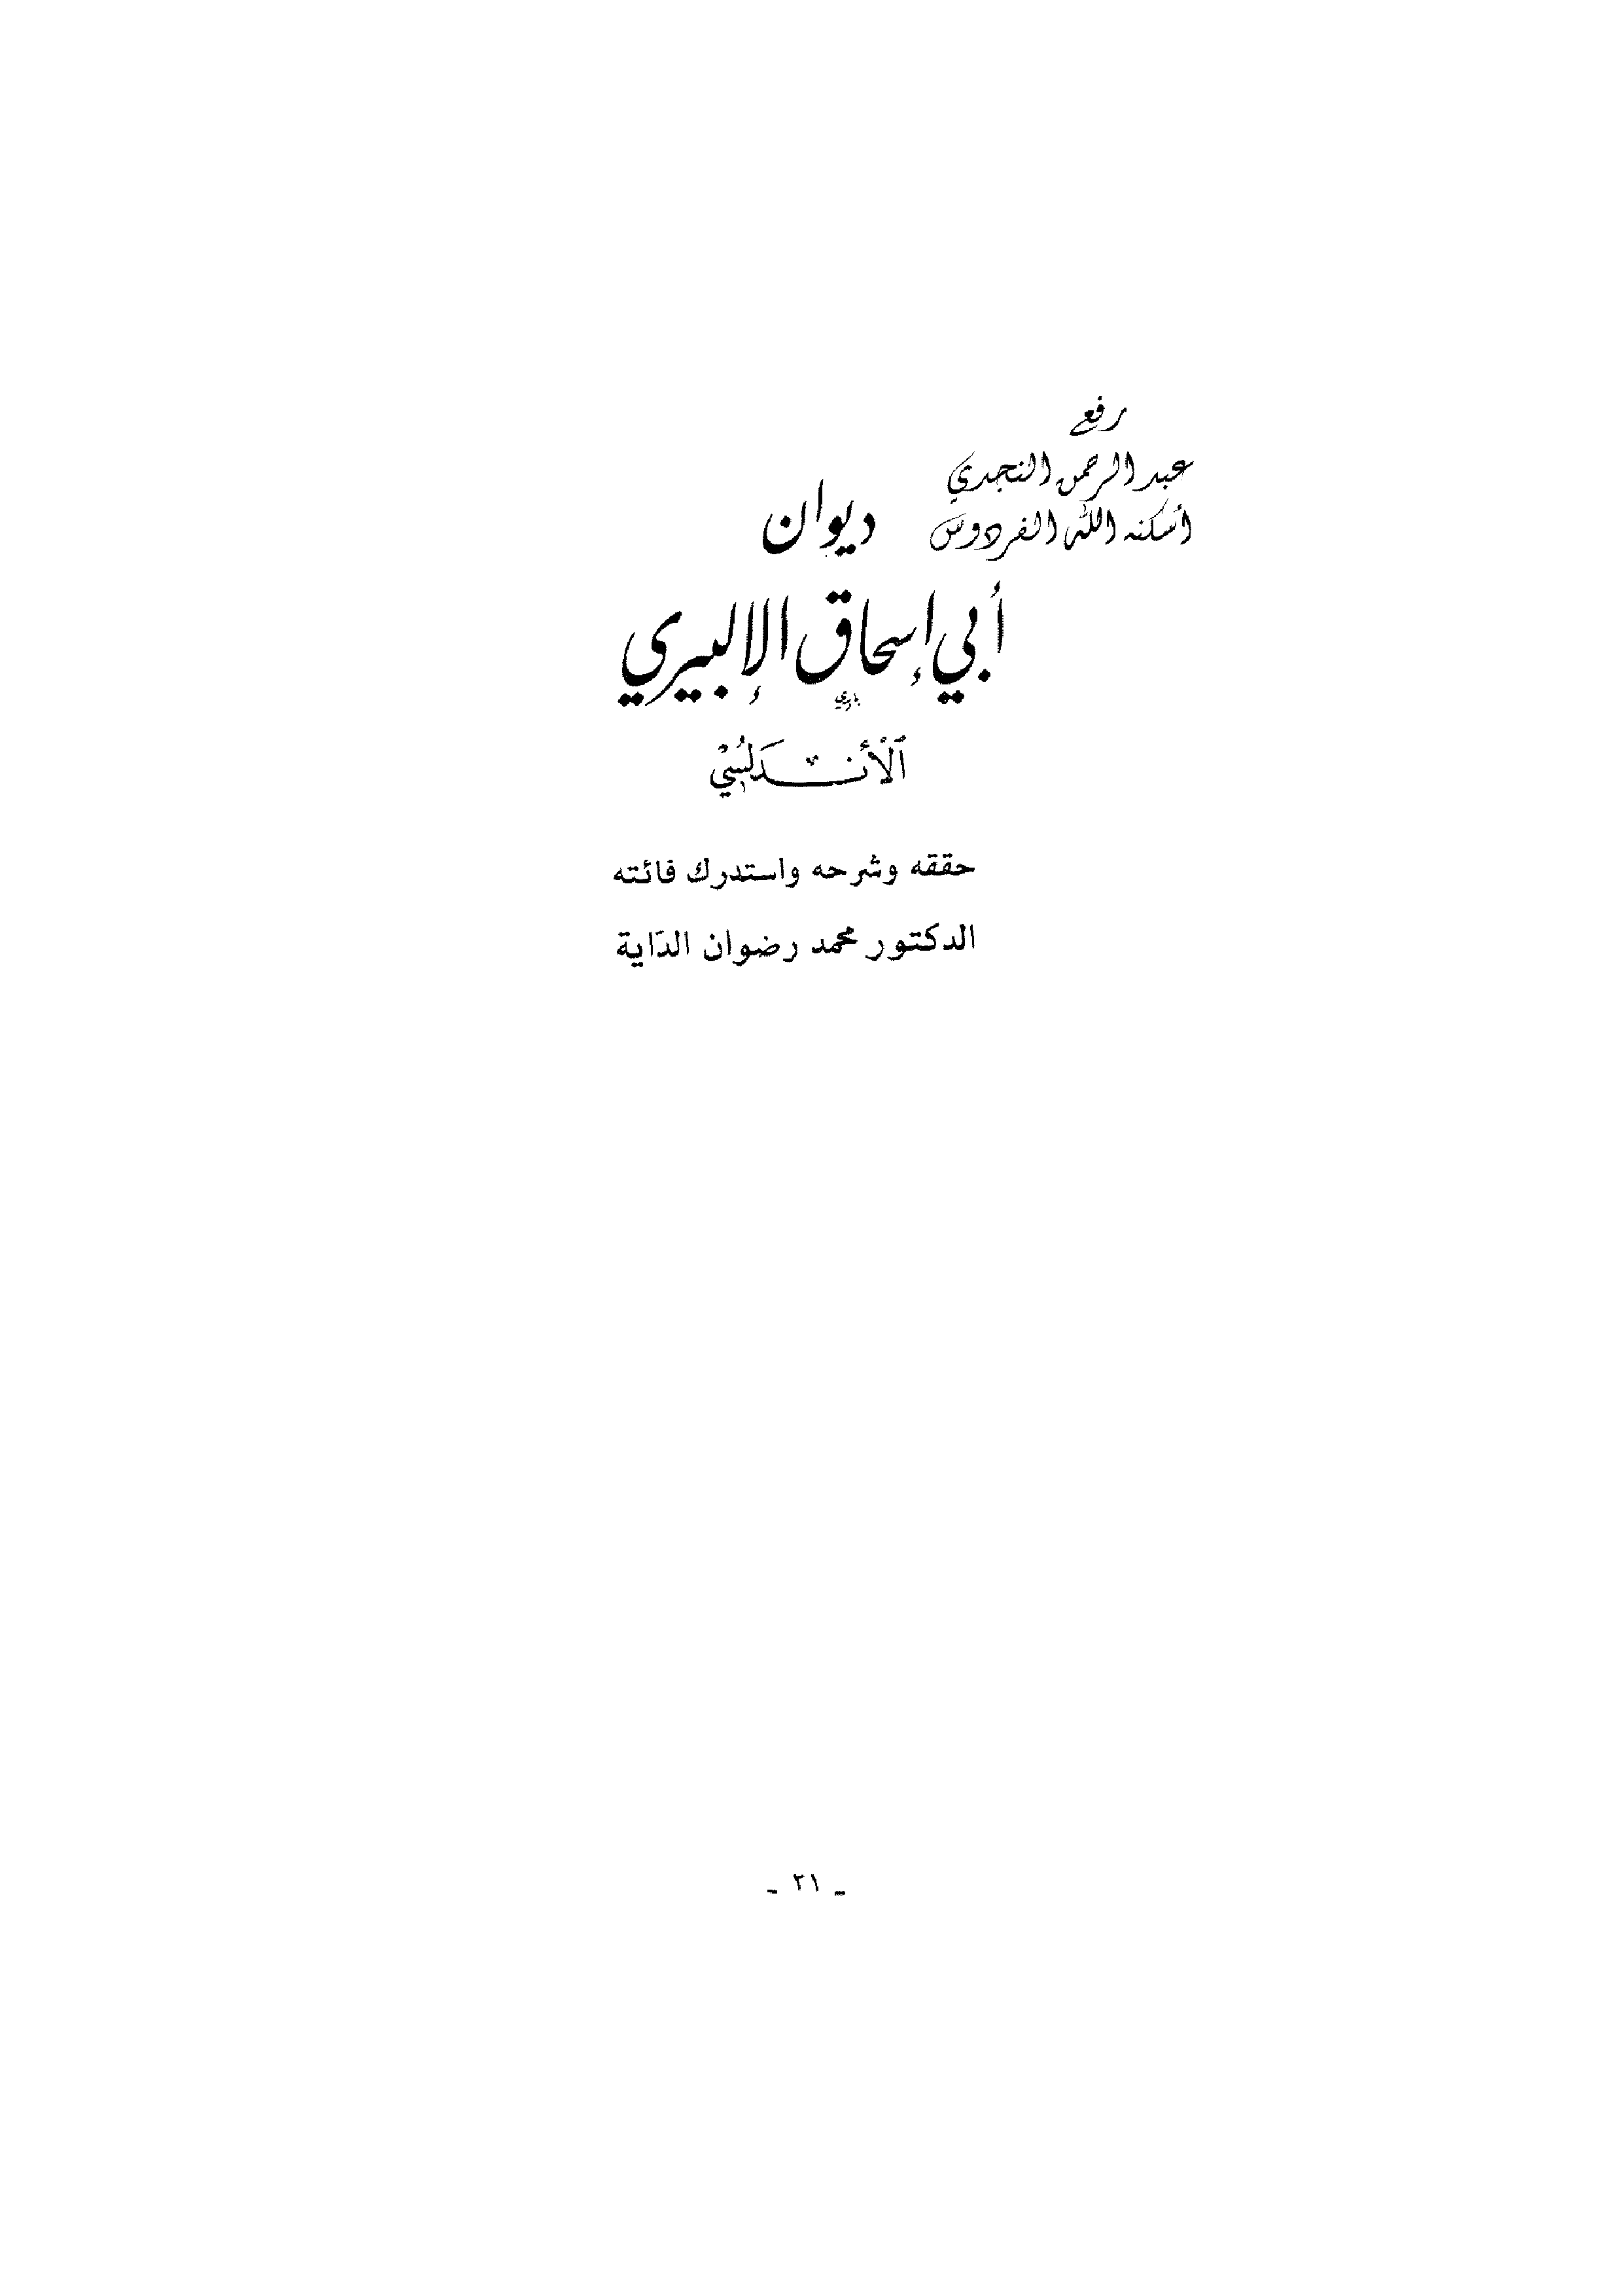 رفع
عبد الرحمن النجدي
أسكنه الله الفردوس
ديوان
أبي إسحاق الإلبيري
ٱلْأَنـدَلُسِيْ
حققه وشرحه واستدرك فائته
الدكتور محمد رضوان الدّاية
ـ ٢١ ـ